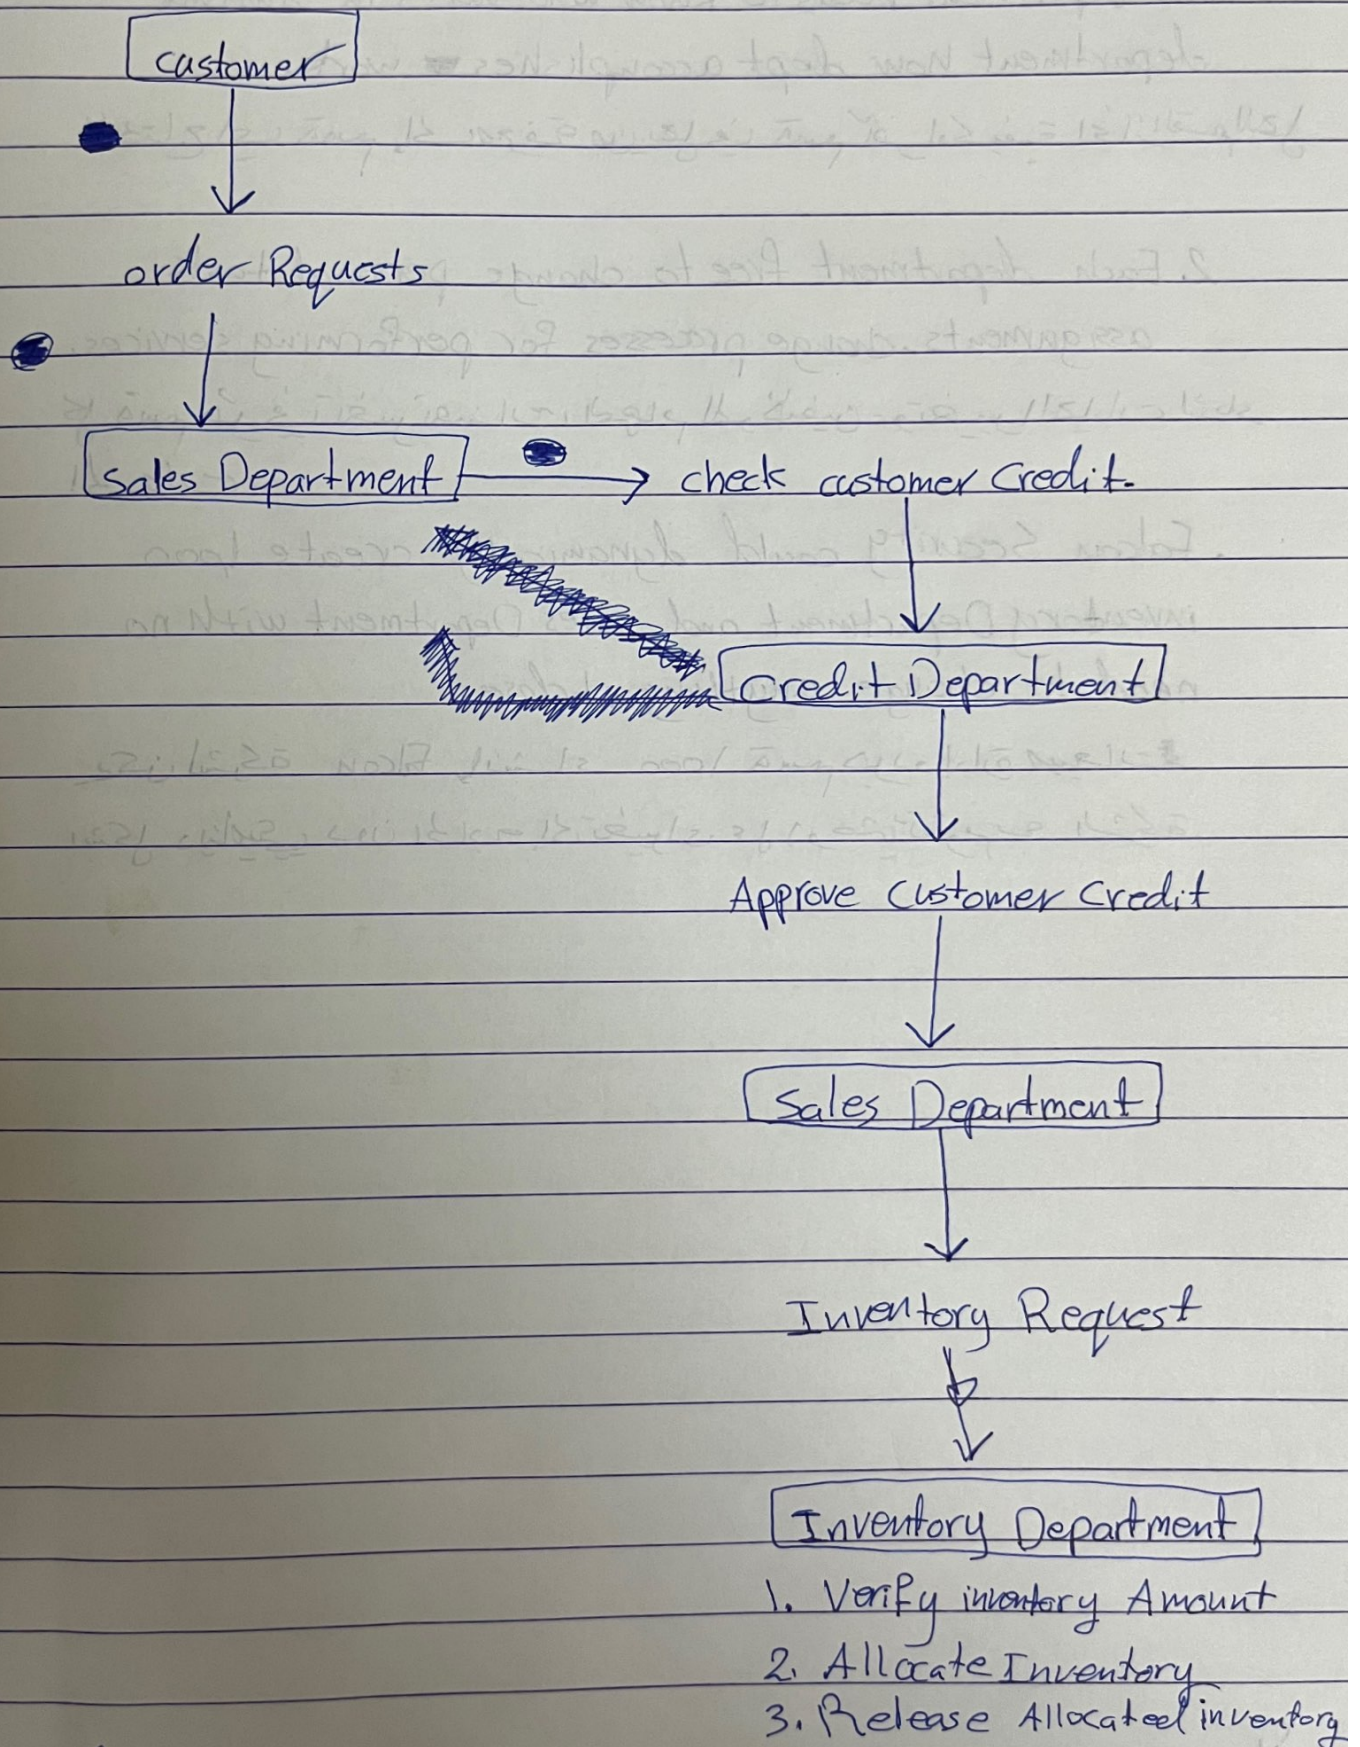 customer
order Requests
Sales Department
check customer Credit.
Credit Department
Approve Customer Credit
Sales Department
Inventory Request
Inventory Department
1. Verify inventory Amount
2. Allocate Inventory
3. Release Allocated inventory